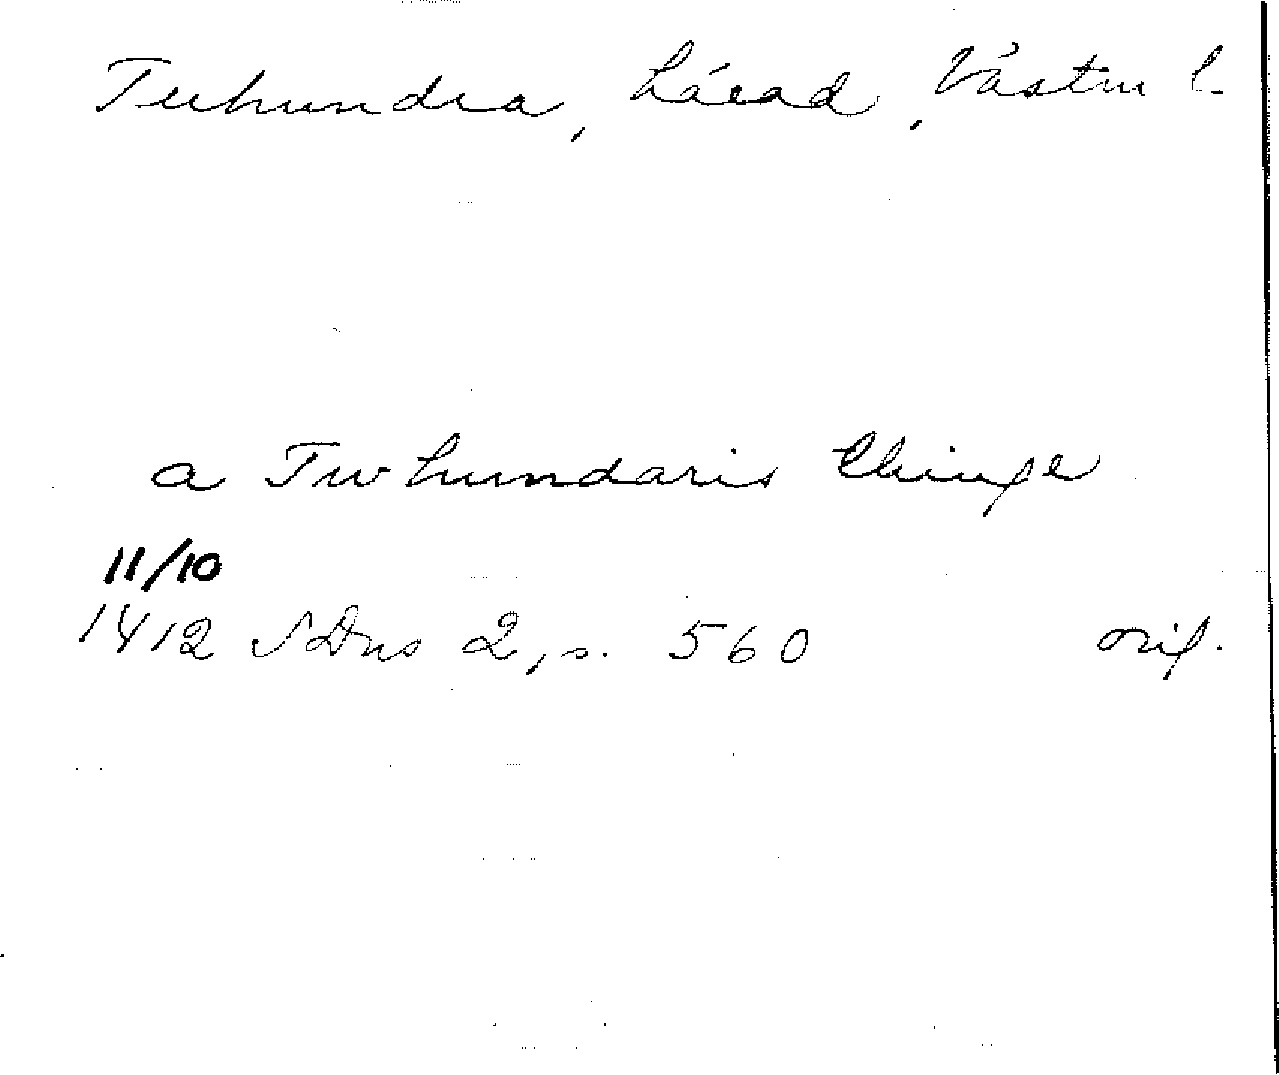 Tuhundra, härad, Västm l.
a Twhundaris thinge
11/10
1412 SDns 2, s. 560 orig.